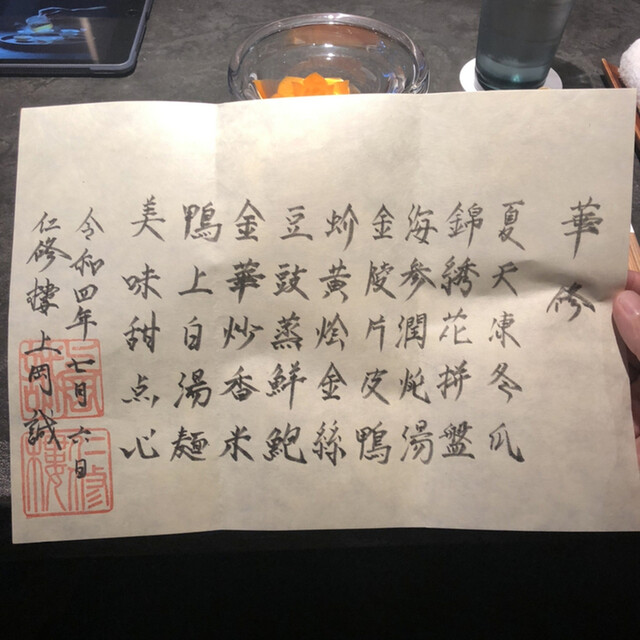 華修
夏天凍冬瓜
錦綉花拼盤
海参潤炖湯
金陵片皮鴨
蚧黄烩金絲
豆豉蒸鮮鮑
金華炒香米
鴨上白湯麵
美味甜点心
令和四年七月六日
仁修樓上岡誠